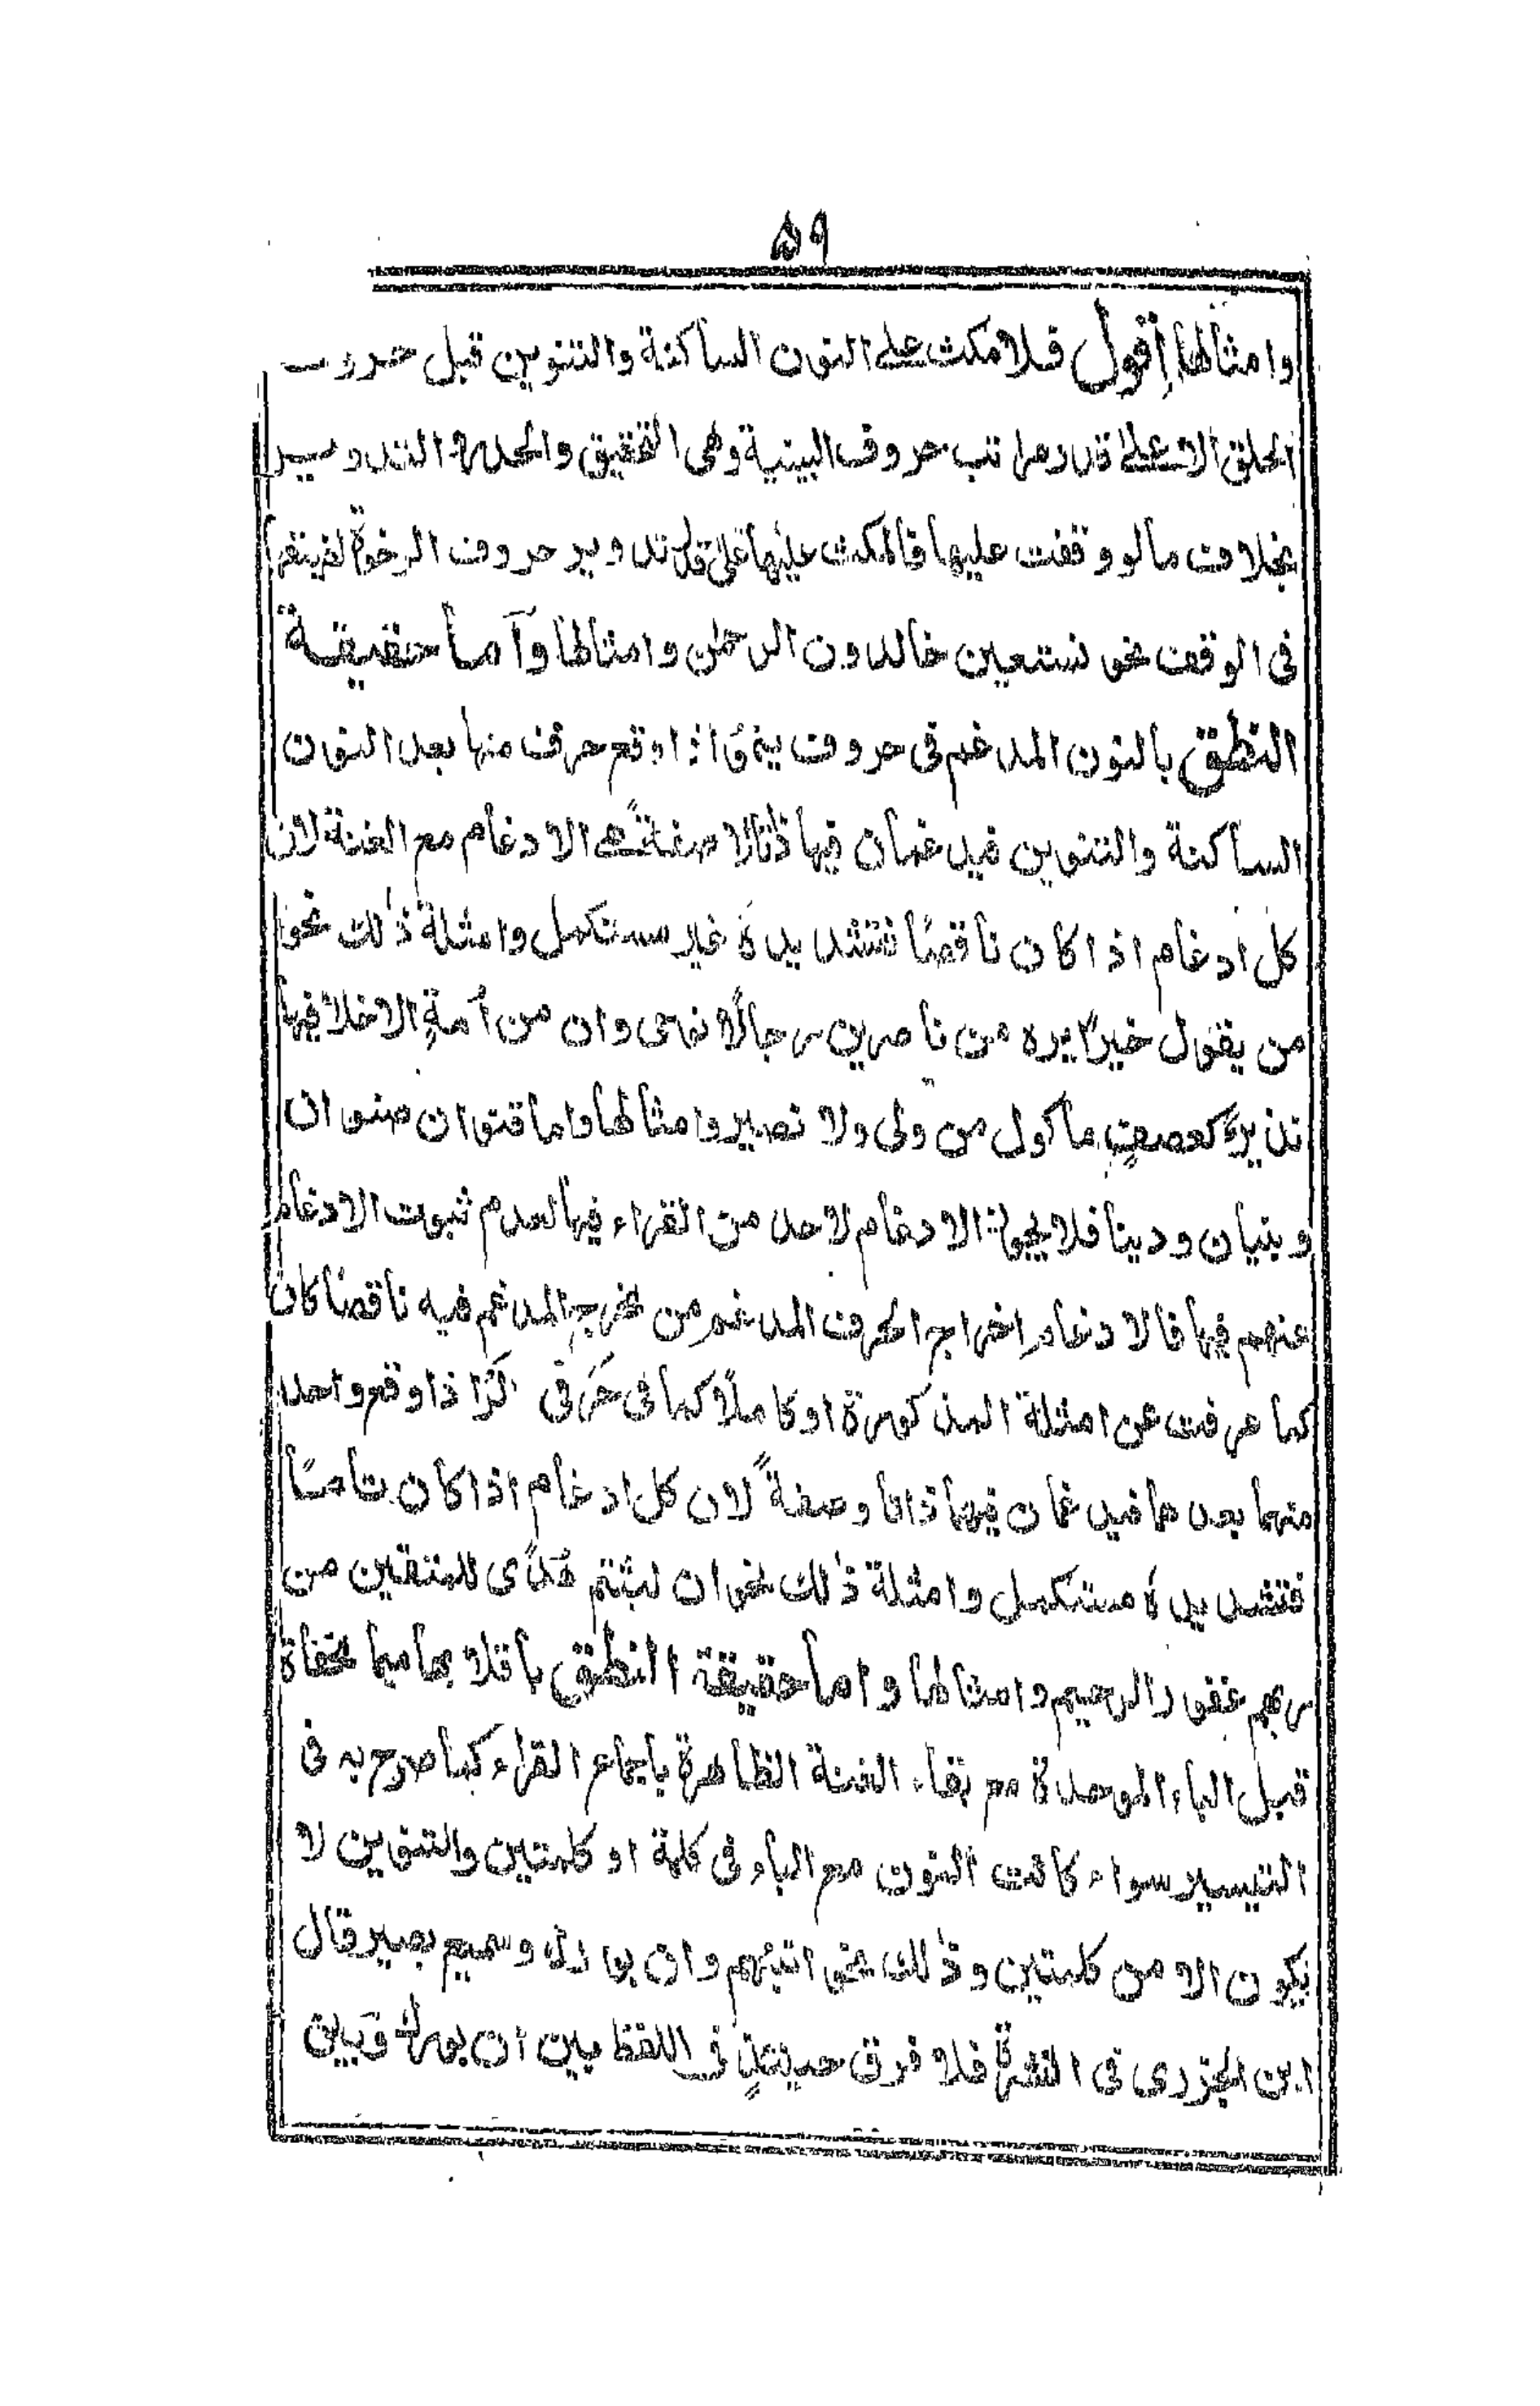 ٥٩
وامثالها اقول فلا مكث على النون الساكنة والتنوين قبل حروف
الحلق الا على قدر مراتب حروف البينية وهى التحقيق والحدر والتدوير
بخلاف ما لو وقفت عليها فالمكث عليها على قدر تدوير حروف الرخوة لغرينتها
فى الوقف نحو نستعين خالدون الرحمٰن وامثالها وآما حقيقة
النطق بالنون المدغم فى حروف ينمو اذا وقع حرف منها بعد النون
الساكنة والتنوين فيدغمان فيها ذاتًا لا صفةً هى الادغام مع الغنة لان
كل ادغام اذا كان ناقصًا فتشديدهٗ غير مستكمل وامثلة ذٰلك نحو
من يقول خيرًا يره من ناصرين رجالًا نوحى وان من اُمةٍ الا خلا فيها
نذيرٌ كعصفٍ ماكول من ولى ولا نصير وامثالها واما قنوان صنوان
وبنيان ودينا فلا يجوز الادغام لاحد من القراء فيها لعدم ثبوت الادغام
عنهم فيها فالادغام اخراج الحرف المدغم من مخرج المدغم فيه ناقصًا كان
كما عرفت عن امثلة المذكورة او كاملًا كما فى حَرفَى لَرَ اذا وقع واحد
منهما بعدهما فيدغمان فيهما ذاتا وصفةً لان كل ادغام اذا كان تامًا
فتشديدهٗ مستكمل وامثلة ذٰلك نحو ان لبثتم هُدًى للمتقين من
ربهم غفور الرحيم وامثالها واما حقيقة النطق باقلابهما ميما مخفاة
قبل الباء الموحدة مع بقاء الغنة الظاهرة باجماع القراء كما صرح به فى
التيسير سواء كانت النون مع الباء فى كلمة او كلمتين والتنوين لا
يكون الا من كلمتين وذٰلك نحو انبئهم وان بورك وسميع بصير قال
ابن الجزرى فى النشر فلا فرق حينئذٍ فى اللفظ بين ان بورك وبين